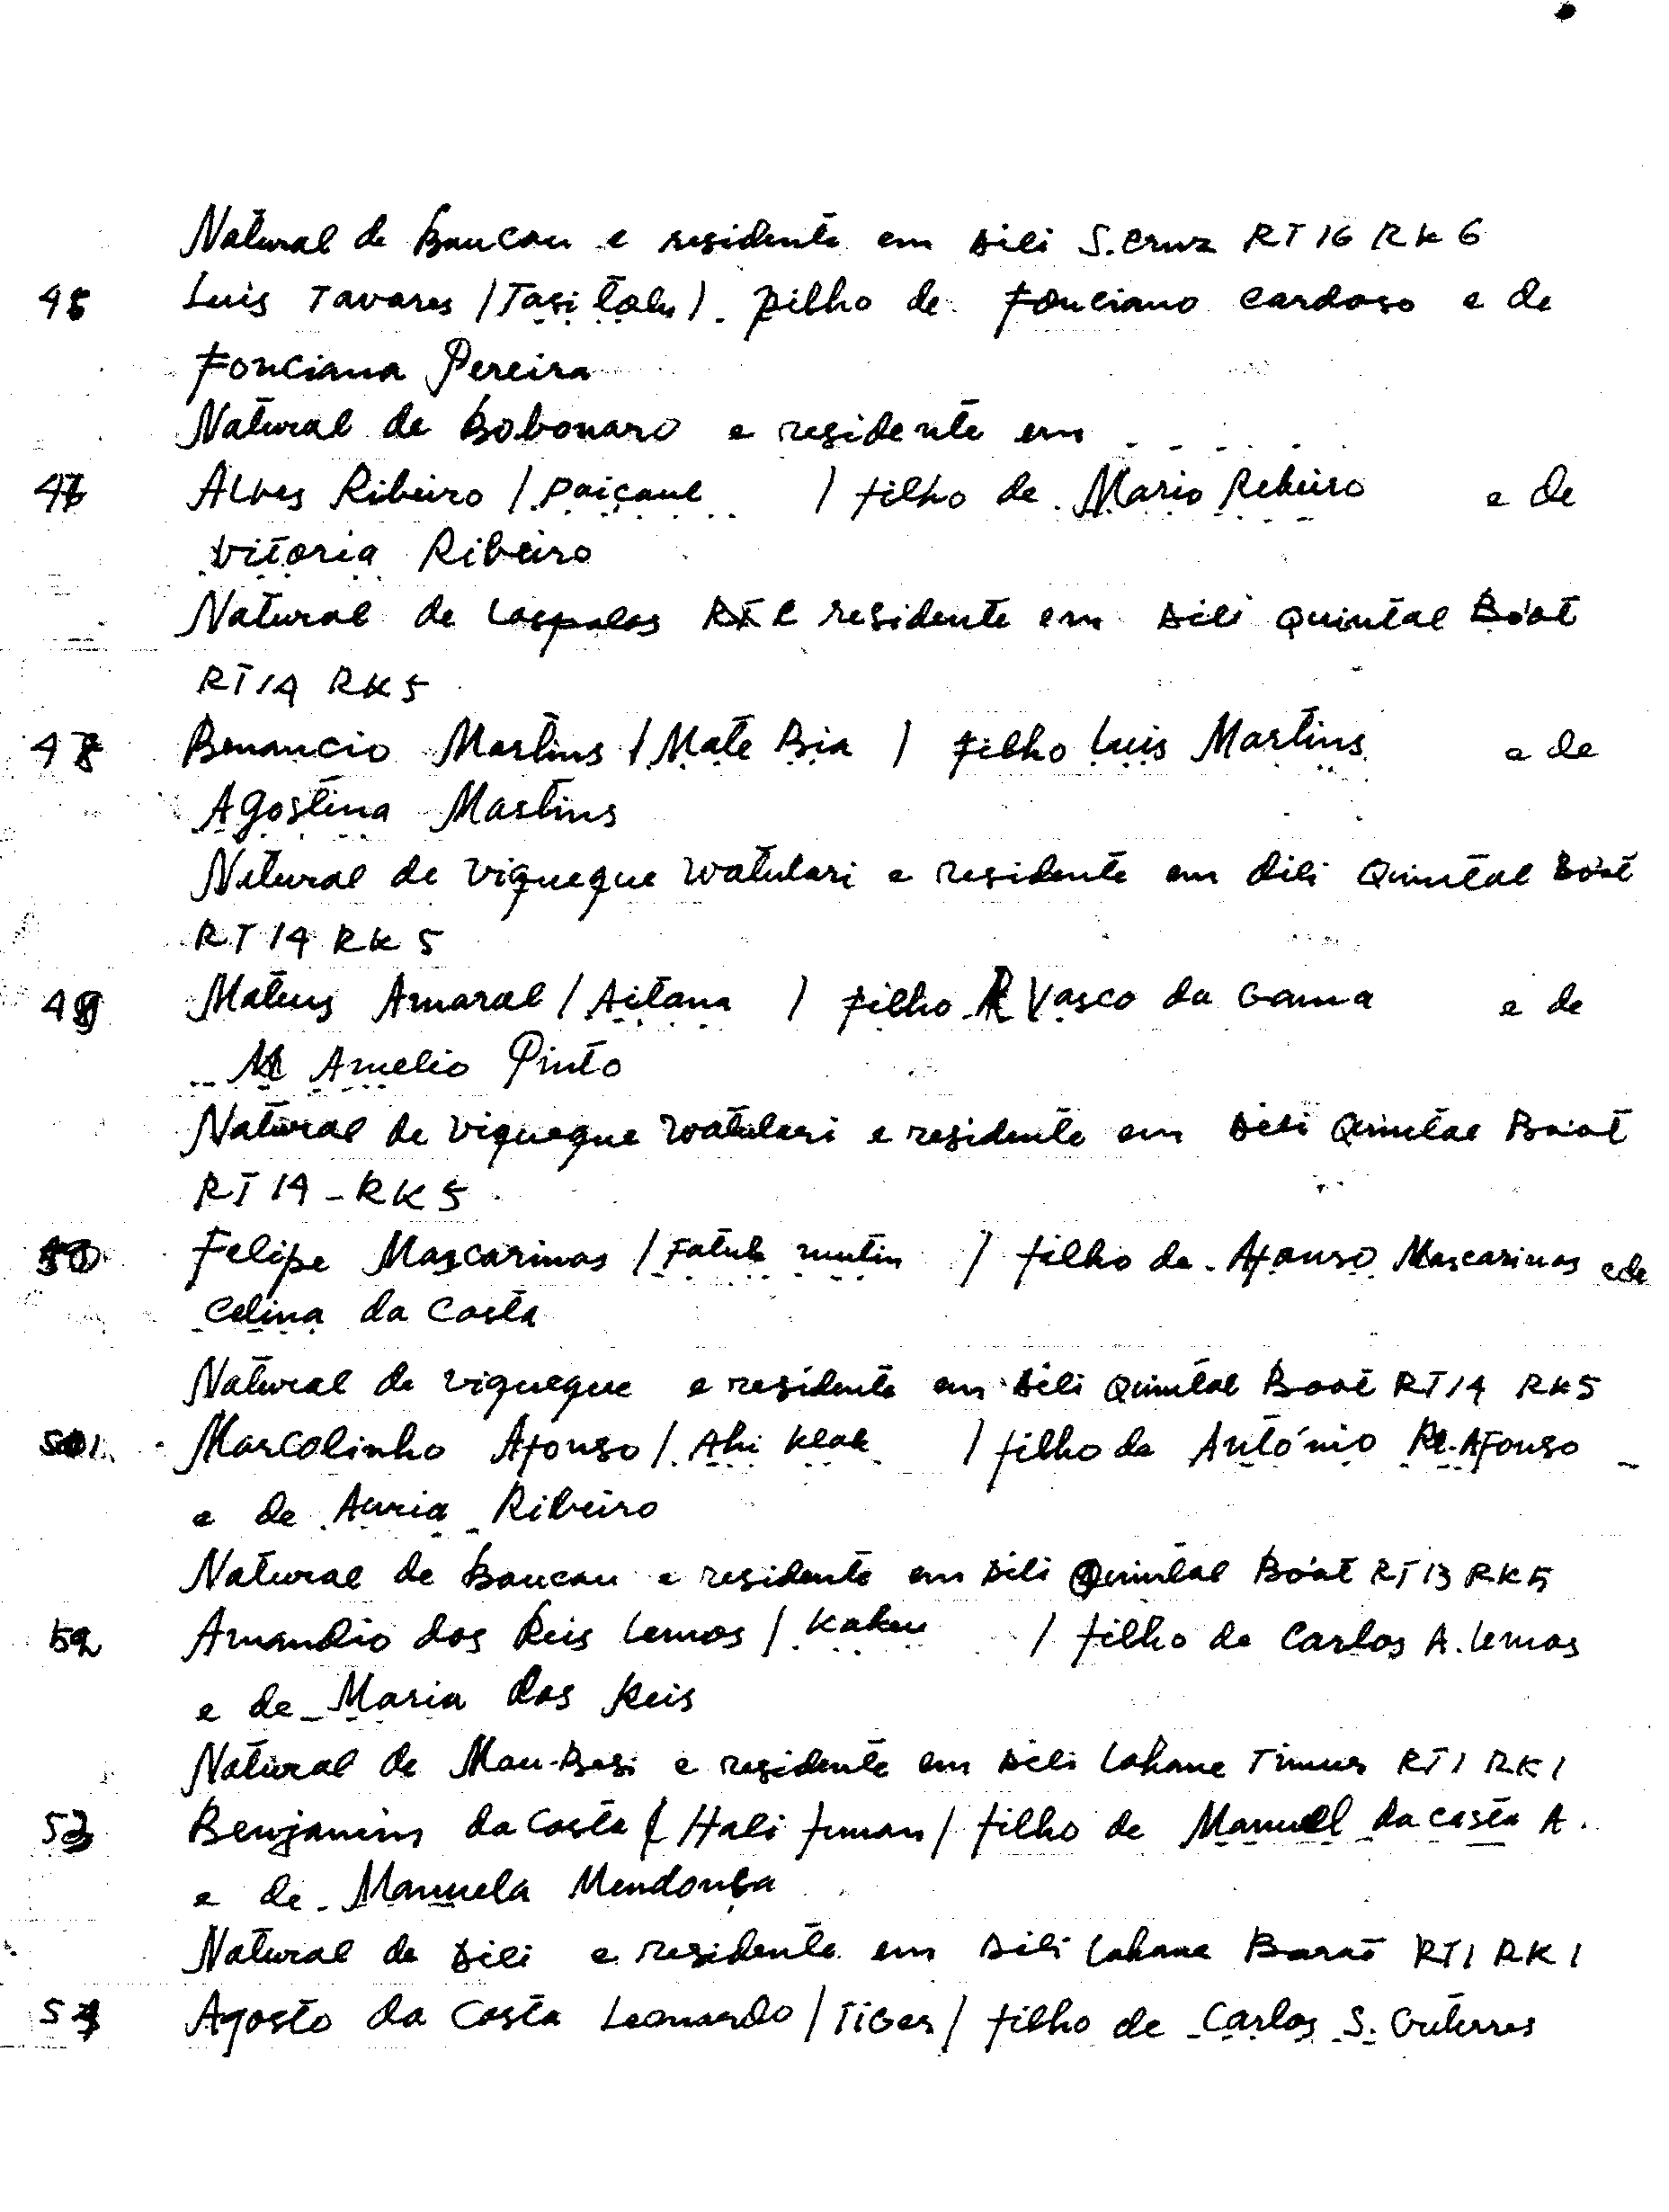 Natural de Baucau e residente em Dili S. Cruz RT 16 RK 6
46 Luis Tavares / Tasi tolu /. filho de Fonciano Cardoso e de
Fonciana Pereira
Natural de Bobonaro e residente em . . . . . .
47 Alves Ribeiro / Paiçaul / filho de Mario Rebeiro e de
Vitoria Ribeiro
Natural de Laspalos e residente em Dili Quintal Bo'ot
RT 14 RK 5
48 Benancio Martins / Mate Bia / filho Luis Martins e de
Agostina Martins
Natural de Viqueque Watulari e residente em Dili Quintal Bo'ot
RT 14 RK 5
49 Mateus Amaral / Aitana / filho Vasco da Gama e de
M Amelio Pinto
Natural de Viqueque Watulari e residente em Dili Quintal Bo'ot
RT 14 - RK 5
50 Felipe Mascarinas / Fatuk mutin / filho de Afonso Mascarinas e de
Celina da Costa
Natural de Viqueque e residente em Dili Quintal Boot RT 14 RK 5
51 Marcolinho Afonso / Ahi klak / filho de António Afonso
e de Auria Ribeiro
Natural de Baucau e residente em Dili Quintal Bo'ot RT 13 RK 5
52 Amandio dos Reis Lemos / Kakeu / filho de Carlos A. Lemos
e de Maria dos Reis
Natural de Mau-Besi e residente em Dili Lahane Timur RT 1 RK 1
53 Benjamim da Costa / Hali fuman / filho de Manuel da Costa A.
e de Manuela Mendonça
Natural de Dili e residente em Dili Lahane Barat RT 1 RK 1
54 Agosto da Costa Leonardo / TiGer / filho de Carlos S. Guterres